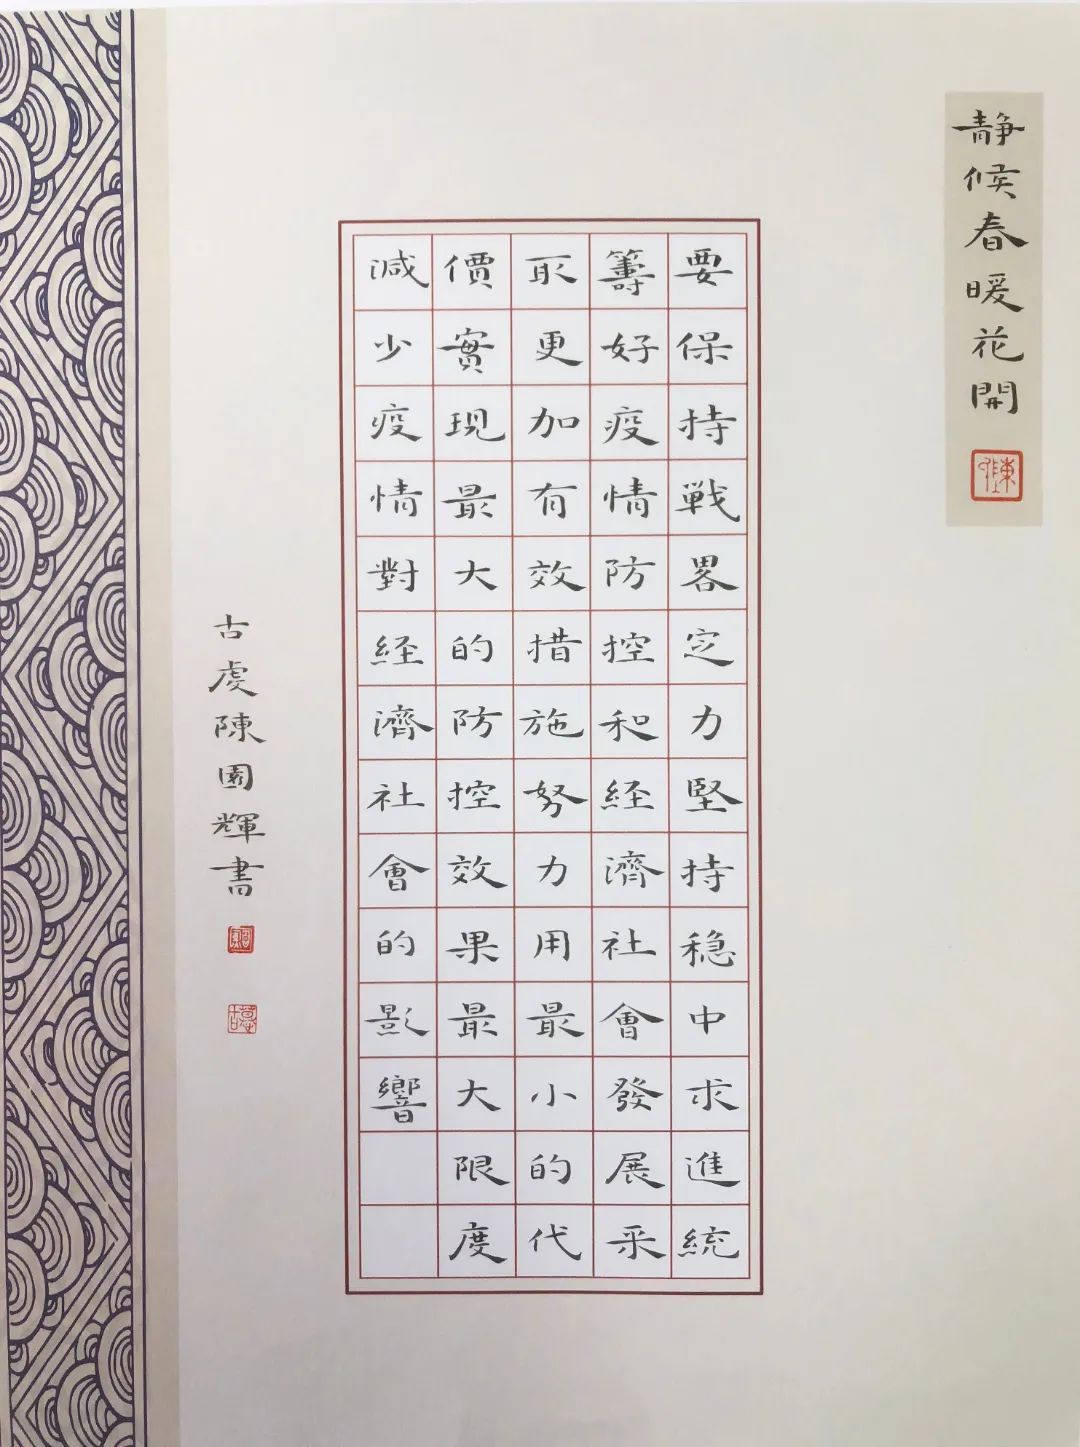 静候春暖花開
要保持戰畧定力堅持穩中求進統
籌好疫情防控和経濟社會發展采
取更加有效措施努力用最小的代
價實現最大的防控效果最大限度
減少疫情對経濟社會的影響
古虞陳園輝書